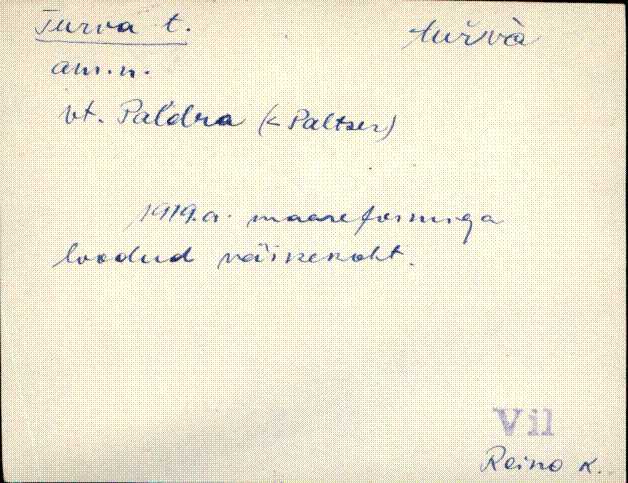 Turva t. tuŕvà
am.n.
vt. Paĺdra (< Paltser)
1919.a. maareformiga
loodud väikekoht.
Vil
Reino k.